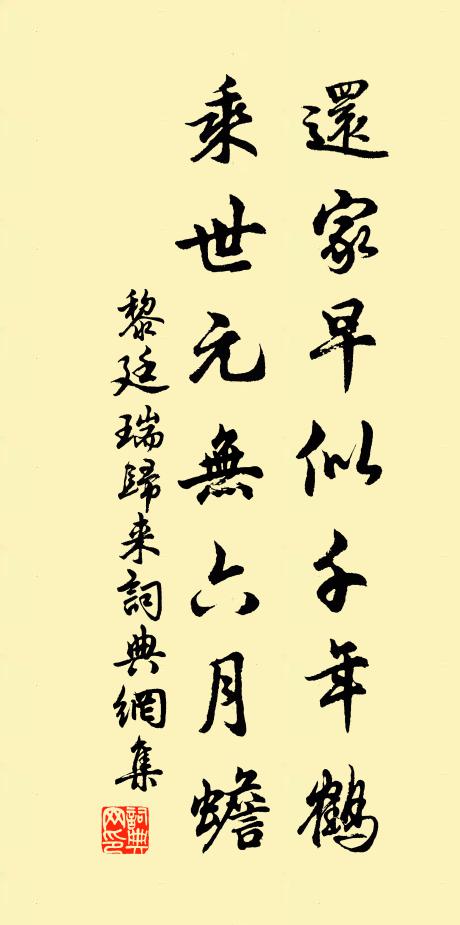 還家早似千年鶴
乘世元無六月蟾
黎廷瑞歸来詞典網集
詞典
网印